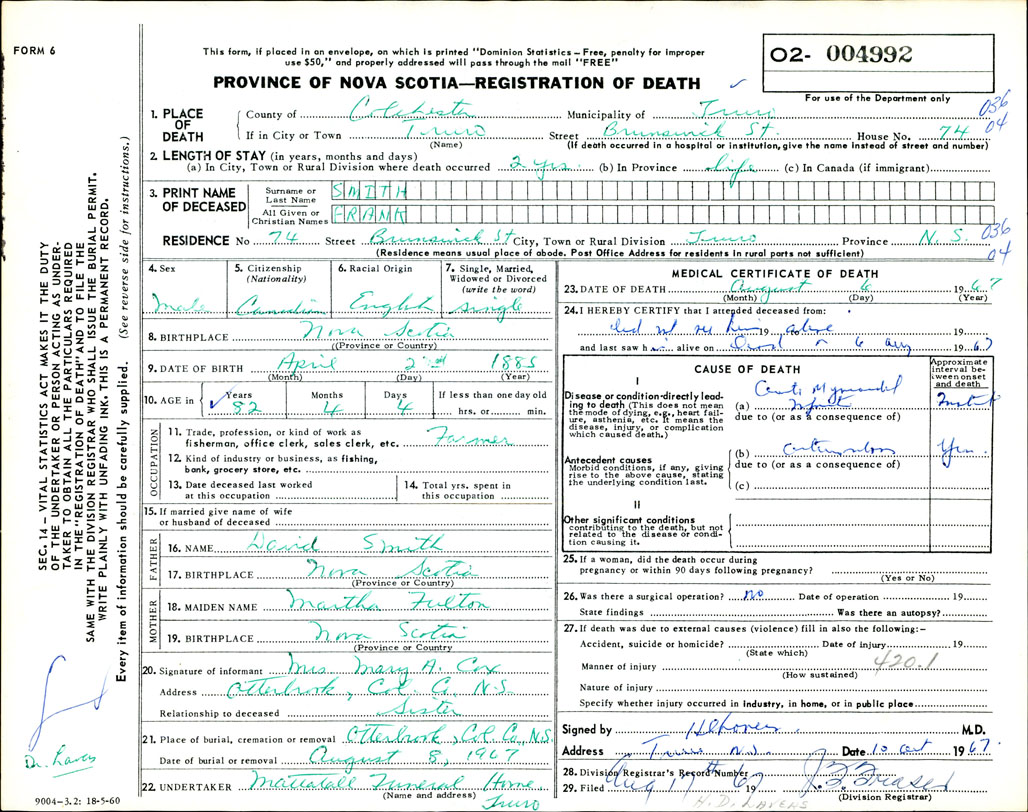 FORM 6
This form, if placed in an envelope, on which is printed "Dominion Statistics – Free, penalty for improper
use $50," and properly addressed will pass through the mail "FREE"
O2- 004992
For use of the Department only
PROVINCE OF NOVA SCOTIA—REGISTRATION OF DEATH
036
04
1. PLACE OF DEATH
County of Colchester Municipality of Truro
If in City or Town Truro Street Brunswick St. House No. 74
(Name) (If death occurred in a hospital or institution, give the name instead of street and number)
2. LENGTH OF STAY (in years, months and days)
(a) In City, Town or Rural Division where death occurred 2 yrs. (b) In Province life (c) In Canada (if immigrant)
3. PRINT NAME OF DECEASED
Surname or Last Name SMITH
All Given or Christian Names FRANK
RESIDENCE No 74 Street Brunswick St City, Town or Rural Division Truro Province N.S.
036
04
(Residence means usual place of abode. Post Office Address for residents in rural parts not sufficient)
4. Sex Male
5. Citizenship (Nationality) Canadian
6. Racial Origin English
7. Single, Married, Widowed or Divorced (write the word) Single
8. BIRTHPLACE Nova Scotia
((Province or Country)
9. DATE OF BIRTH April 2nd 1885
(Month) (Day) (Year)
10. AGE in Years 82 Months 4 Days 4 If less than one day old hrs. or min.
OCCUPATION
11. Trade, profession, or kind of work as
fisherman, office clerk, sales clerk, etc. Farmer
12. Kind of industry or business, as fishing,
bank, grocery store, etc.
13. Date deceased last worked
at this occupation
14. Total yrs. spent in
this occupation
15. If married give name of wife
or husband of deceased
FATHER
16. NAME David Smith
17. BIRTHPLACE Nova Scotia
(Province or Country)
MOTHER
18. MAIDEN NAME Martha Fulton
19. BIRTHPLACE Nova Scotia
(Province or Country
20. Signature of informant Mrs. Mary A. Cox
Address Otterbrook, Col. Co. N.S.
Relationship to deceased Sister
21. Place of burial, cremation or removal Otterbrook, Col. Co. N.S.
Date of burial or removal August 8, 1967
22. UNDERTAKER Mattatall Funeral Home
(Name and address) Truro
MEDICAL CERTIFICATE OF DEATH
23. DATE OF DEATH August 6 1967
(Month) (Day) (Year)
24. I HEREBY CERTIFY that I attended deceased from:
did not see him 19 alive 19
and last saw h alive on 6 aug 1967
CAUSE OF DEATH
Approximate interval between onset and death
I
Disease or condition directly leading to death (This does not mean the mode of dying, e.g., heart failure, asthenia, etc. It means the disease, injury, or complication which caused death.)
(a)
due to (or as a consequence of)
Antecedent causes
Morbid conditions, if any, giving rise to the above cause, stating the underlying condition last.
(b) Yrs.
due to (or as a consequence of)
(c)
II
Other significant conditions
contributing to the death, but not related to the disease or condition causing it.
25. If a woman, did the death occur during
pregnancy or within 90 days following pregnancy?
(Yes or No)
26. Was there a surgical operation? No Date of operation 19
State findings Was there an autopsy?
27. If death was due to external causes (violence) fill in also the following:–
Accident, suicide or homicide? Date of injury 19
(State which)
420.1
Manner of injury
(How sustained)
Nature of injury
Specify whether injury occurred in industry, in home, or in public place
Signed by M.D.
Address Truro N.S. Date 10 1967
28. Division Registrar's Record Number
29. Filed Aug 17th 1967
(Division Registrar)
H. D. LAVERS
SEC. 14 – VITAL STATISTICS ACT MAKES IT THE DUTY
OF THE UNDERTAKER OR PERSON ACTING AS UNDER-
TAKER TO OBTAIN ALL THE PARTICULARS REQUIRED
IN THE "REGISTRATION OF DEATH" AND TO FILE THE
SAME WITH THE DIVISION REGISTRAR WHO SHALL ISSUE THE BURIAL PERMIT.
WRITE PLAINLY WITH UNFADING INK. THIS IS A PERMANENT RECORD.
Every item of information should be carefully supplied. (See reverse side for instructions.)
Dr. Lavers
9004-3.2: 18-5-60